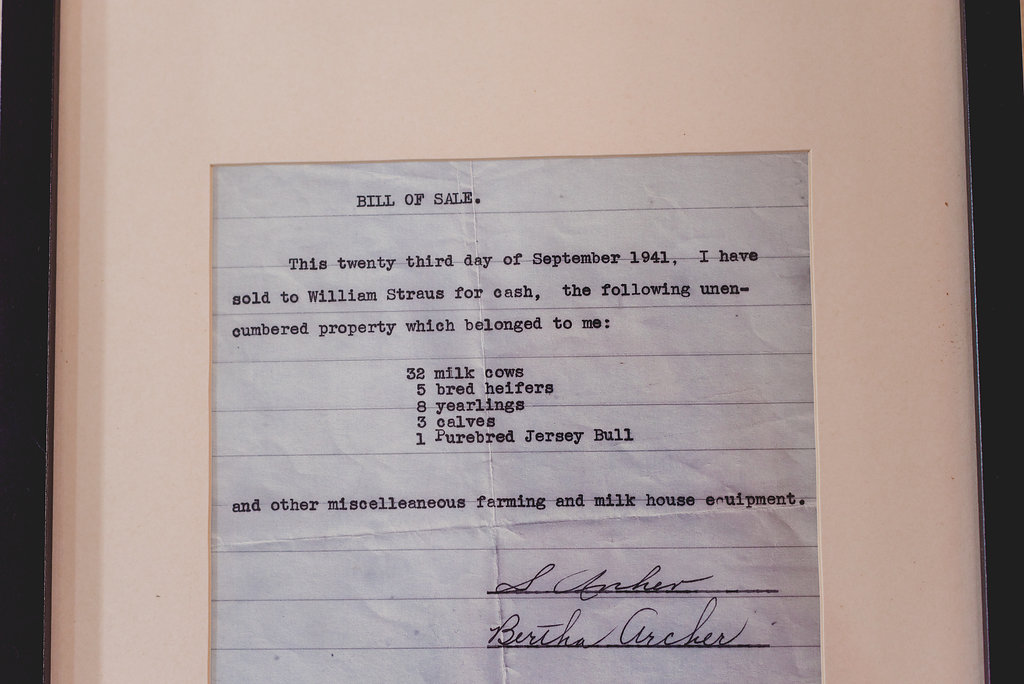 BILL OF SALE.
This twenty third day of September 1941, I have
sold to William Straus for cash, the following unen-
cumbered property which belonged to me:
32 milk cows
5 bred heifers
8 yearlings
3 calves
1 Purebred Jersey Bull
and other miscelleaneous farming and milk house equipment.
S. Archer
Bertha Archer